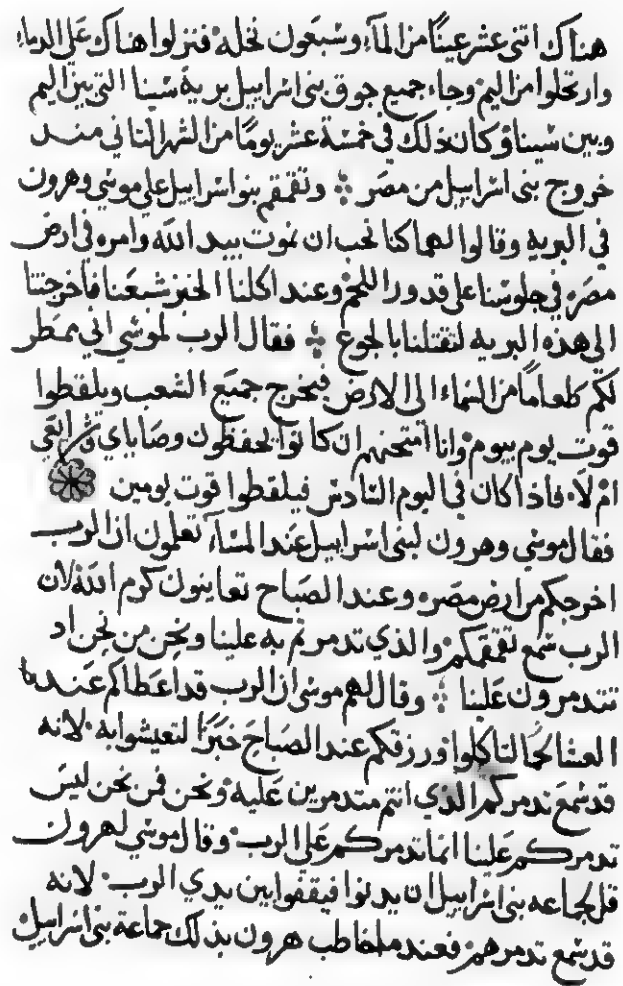 هناك اثنى عشر عينًا من المآء وسبعون نخله فنزلوا هناك على الماء
وارتحلوا من اليم وجاء جميع جوق بنى اسراييل برية سينا التى بين اليم
وبين سينا وكان ذلك فى خمسة عشر يومًا من الشهر الثاني منــد
خروج بنى اسراييل من مصر ونقمقم بنو اسراييل علي موسي وهرون
فى البرية وقالوا لهما كنا نحب ان نموت بيد الله وامره في ارض
مصر في جلوسنا على قدور اللحم وعند اكلنا الخبز شبعنا فاخرجتنا
الى هذه البريه لتقتلنا بالجوع فقال الرب لموسي اني ممطر
لكم طعامًا من السماء الى الارض فيخرج جميع الشعب ويلقطوا
قوت يوم بيوم وانا امتحنهم ان كانوا يحفظون وصاياي
ام لا فاذا كان فى اليوم السادس فيلقطوا قوت يومين
فقال موسي وهرون لبنى اسراييل عند المسآء تعلمون ان الرب
اخرجكم من ارض مصر وعند الصباح تعاينون كرم الله لان
الرب سمع تقمقمكم والذي تدمرتم به علينا ونحن من نحن اد
تتدمرون علينا وقال لهم موسى ان الرب قد اعطاكم عند
العشا لحمًا لتاكلوا ورزقكم عند الصباح خبزًا لتعيشوا به لانه
قد سمع تدمركم الذي انتم متدمرين عليه ونحن فمن نحن ليس
تدمركم علينا انما تدمركم على الرب وقال موسي لهرون
قل لجماعه بنى اسراييل ان يدنوا فيقفوا بين يدي الرب لانه
قد سمع تدمرهم فعند ما خاطب هرون بذلك جماعة بنى اسراييل